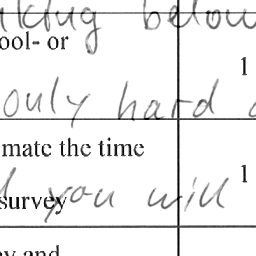 below
ool- or
1
only hard
mate the time
1
you will
survey